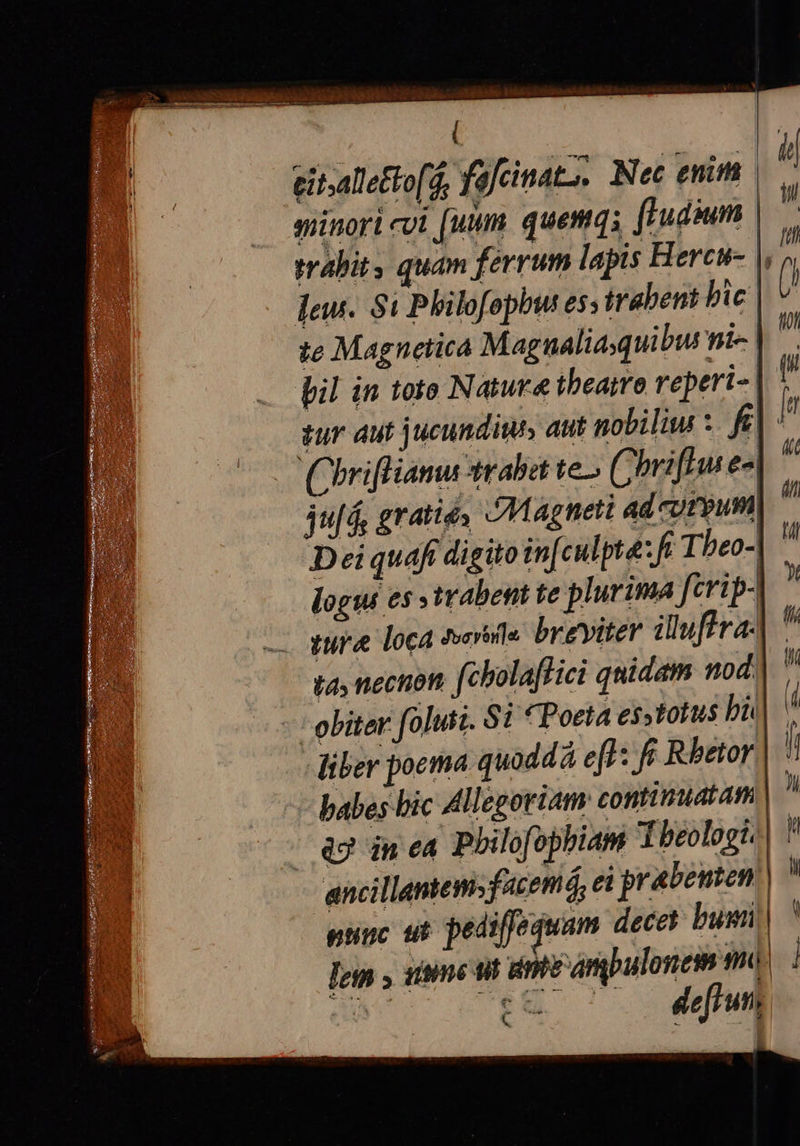 cit, allectosq́; fascinat. Nec enim
minori vi suum quemq; studium
trahit, quàm ferrum lapis Hercu-
leus. Si Philosophus es, trahent hîc
te Magnetica Magnalia, quibus ni-
hil in toto Naturæ theatro reperi-
tur aut jucundius, aut nobilius: si
Christianus trahet te, Christus e-
jusq́; gratiæ, Magneti ad vivum
Dei quasi digito insculptæ: si Theo-
logus es, trahent te plurima scrip-
turæ loca breviter illustra-
ta, necnon scholastici quidam nod
obiter soluti. Si Poeta es, totus hic
liber poema quoddã est: si Rhetor
habes hîc Allegoriam continuatam
& in ea Philosophiam Theologi
ancillantem, facemq́; ei præbentem
nunc ut pedissequam decet humi
lem, nunc ut ante ambulonem mo
destum